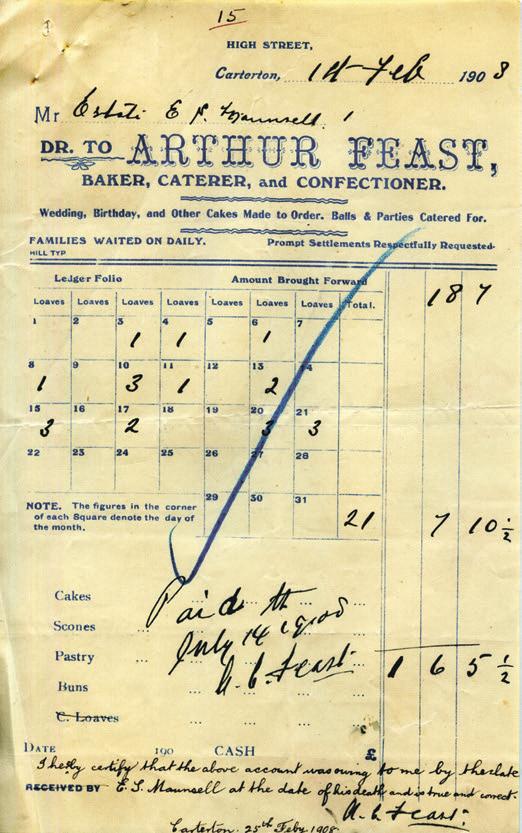 15
HIGH STREET,
Carterton, 14 Feb 1908
Mr Estate E S Maunsell
DR. TO ARTHUR FEAST,
BAKER, CATERER, and CONFECTIONER.
Wedding, Birthday, and Other Cakes Made to Order. Balls & Parties Catered For.
FAMILIES WAITED ON DAILY. Prompt Settlements Respectfully Requested.
HILL TYP
Ledger Folio Amount Brought Forward 18 7
Loaves Loaves Loaves Loaves Loaves Loaves Loaves Total.
1 2 3 4 5 6 7
1 1 1
8 9 10 11 12 13 14
1 3 1 2
15 16 17 18 19 20 21
3 2 3 3
22 23 24 25 26 27 28
29 30 31
NOTE. The figures in the corner
of each Square denote the day of
the month.
21 7 10 ½
Cakes ... ... ...
Paid
Scones ... ... ...
July 14 1908
Pastry ... ... ... 1 6 5 ½
A. C. Feast
Buns ... ... ...
C. Loaves ... ... ...
DATE 190 CASH £
I hereby certify that the above account was owing to me by the late
RECEIVED BY E. S. Maunsell at the date of his death and is true and correct.
A. C. Feast.
Carterton. 25th Feby 1908.